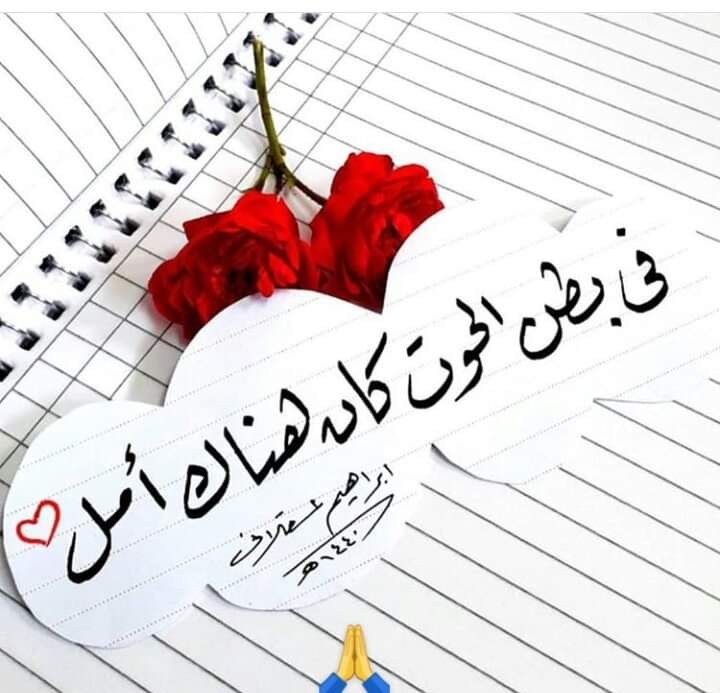 في بطن الحوت كان هناك أمل
ابراهيم عسقلاني
١٤٤٠هـ